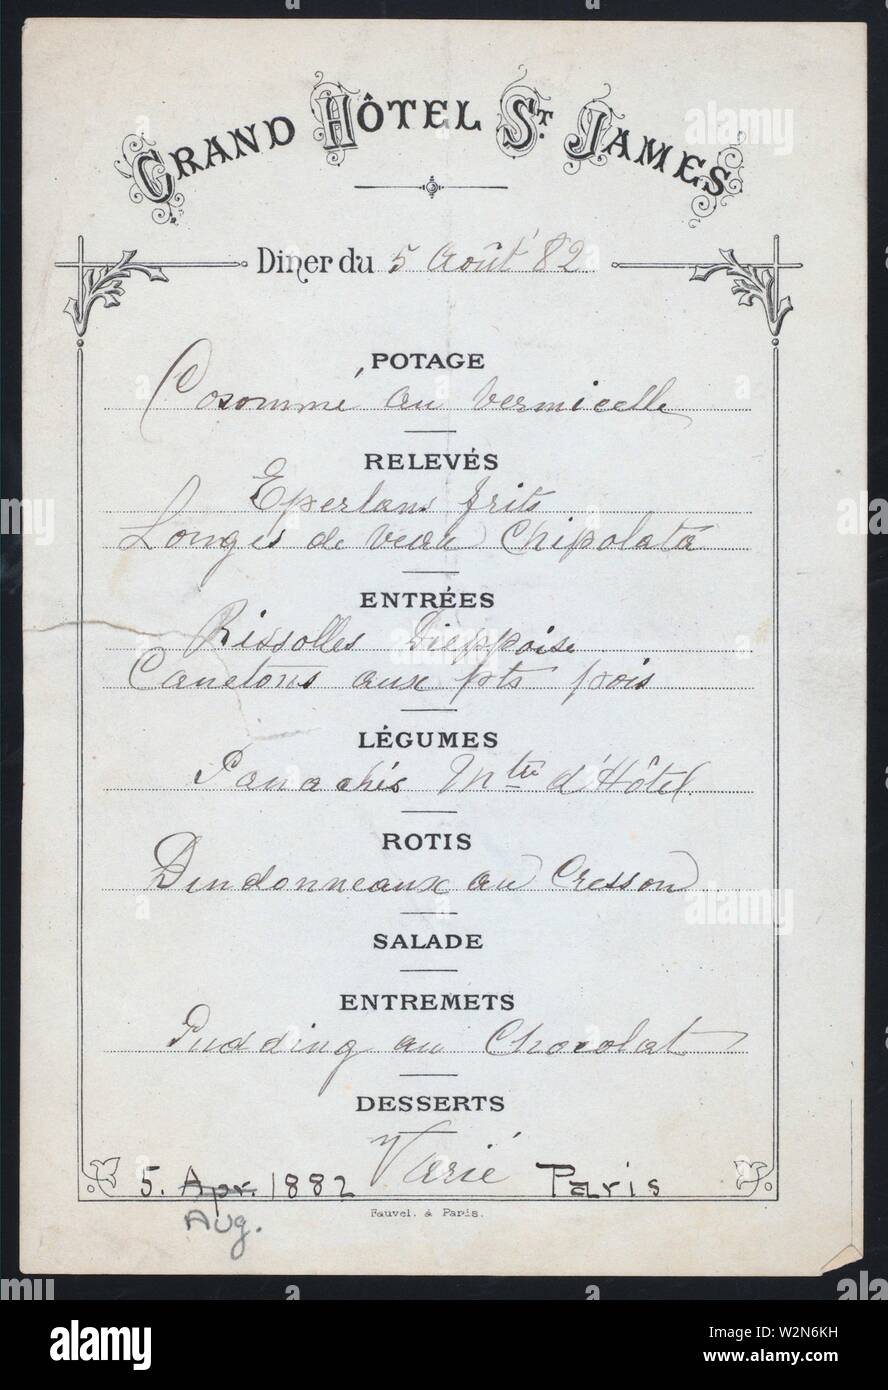 GRAND HÔTEL ST. JAMES
Diner du 5 Août 82
POTAGE
Cosommé au Vermicelle
RELEVÉS
Eperlans frits
Longes de veau Chipolata
ENTRÉES
Rissolles Dieppoise
Canetons aux pts pois
LÉGUMES
Panachés Mtre d'Hôtel
ROTIS
Dindonneaux au Cresson
SALADE
ENTREMETS
Pudding au Chocolat
DESSERTS
Varié
5. Apr. 1882 Paris
Aug.
Fauvel. à Paris.
alamy
alamy
Image ID: W2N6KH
www.alamy.com